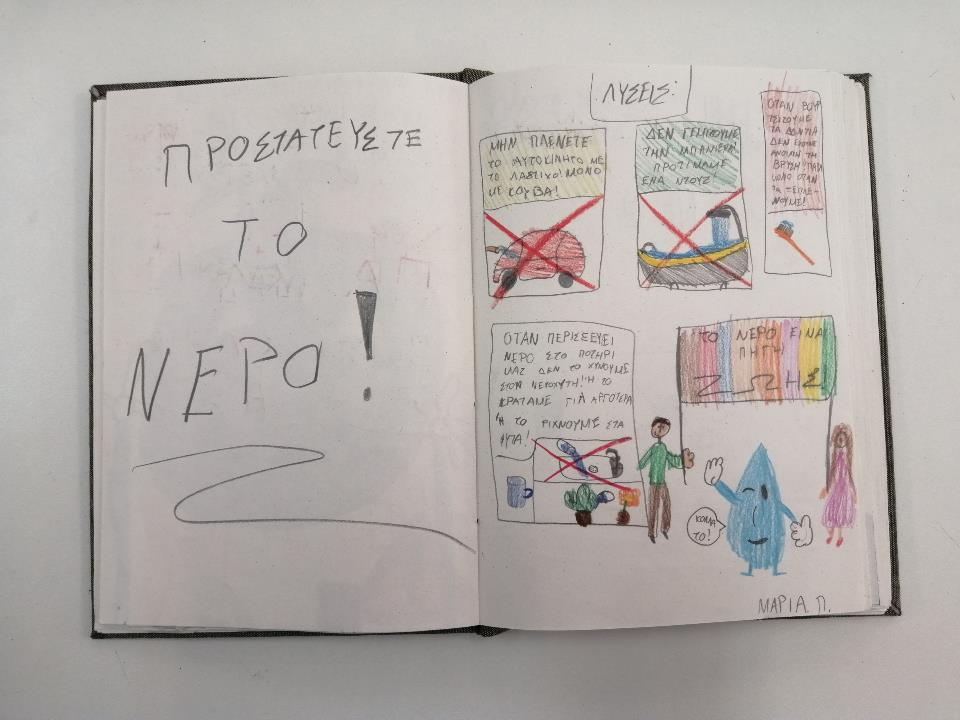 ΠΡΟΣΤΑΤΕΥΣΤΕ
ΤΟ
ΝΕΡΟ!
ΛΥΣΕΙΣ:
ΜΗΝ ΠΛΕΝΕΤΕ
ΤΟ ΑΥΤΟΚΙΝΗΤΟ ΜΕ
ΤΟ ΛΑΣΤΙΧΟ! ΜΟΝΟ
ΜΕ ΚΟΥΒΑ!
ΔΕΝ ΓΕΜΙΖΟΥΜΕ
ΤΗΝ ΜΠΑΝΙΕΡΑ!
ΠΡΟΤΙΜΑΜΕ
ΕΝΑ ΝΤΟΥΖ!
ΟΤΑΝ ΒΟΥΡ
ΤΣΙΖΟΥΜΕ
ΤΑ ΔΟΝΤΙΑ
ΔΕΝ ΕΧΟΥΜΕ
ΑΝΟΙΧΤΗ ΤΗ
ΒΡΥΣΗ!
ΜΟΝΟ ΟΤΑΝ
ΤΑ ΞΕΠΛΕ-
ΝΟΥΜΕ!
ΟΤΑΝ ΠΕΡΙΣΣΕΥΕΙ
ΝΕΡΟ ΣΤΟ ΠΟΤΗΡΙ
ΜΑΣ ΔΕΝ ΤΟ ΧΥΝΟΥΜΕ
ΣΤΟΝ ΝΕΡΟΧΥΤΗ! Ή ΤΟ
ΚΡΑΤΑΜΕ ΓΙΑ ΑΡΓΟΤΕΡΑ
Ή ΤΟ ΡΙΧΝΟΥΜΕ ΣΤΑ
ΦΥΤΑ!
ΤΟ ΝΕΡΟ ΕΙΝΑΙ
ΠΗΓΗ
ΖΩΗΣ!
ΚΟΜΑ
ΤΟ!
ΜΑΡΙΑ Π.